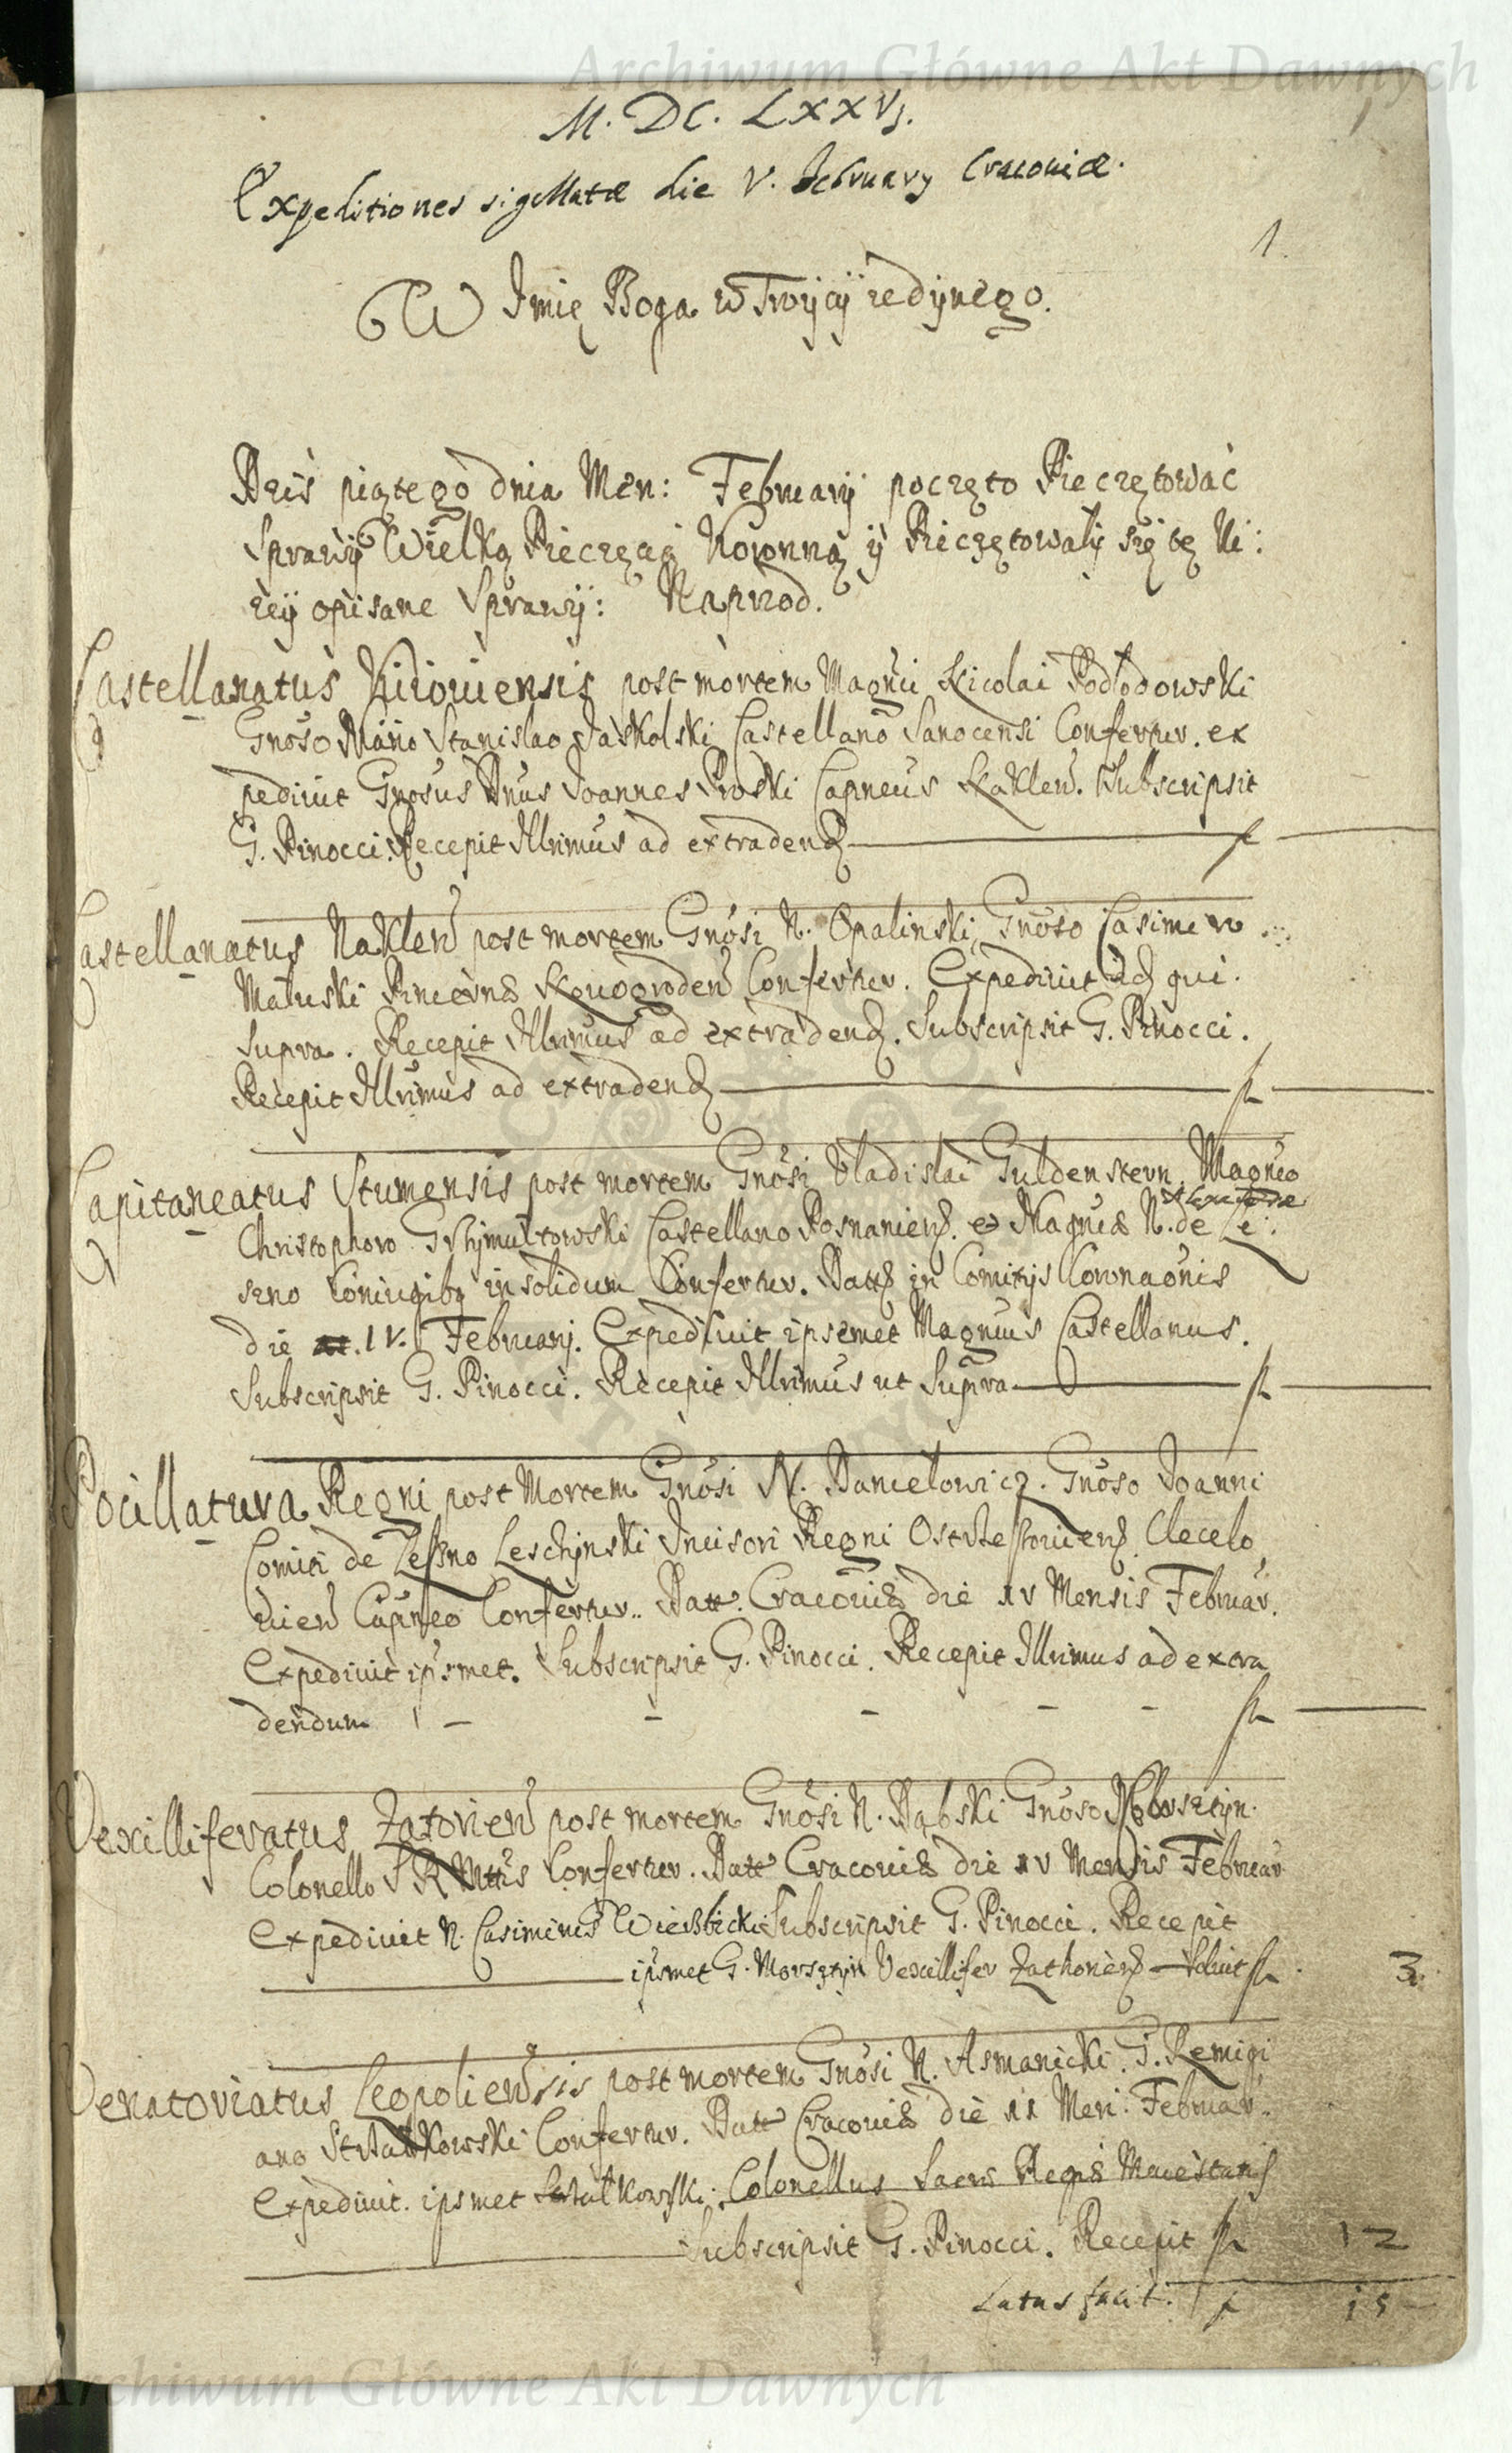 Archiwum Główne Akt Dawnych
M. DC. LXXVJ.
Expeditiones sigillatæ die V. February Cracouiæ.
1
1.
W Jmię Boga w Troÿcÿ iedÿnego.
Dziś piątego dnia Men: Februarÿ poczęto Pieczętować
Sprawÿ Wielką Pieczęcią Koronną ÿ Pieczętowałÿ się tę Ni:
zeÿ opisane Sprawÿ: Naprzod.
Castellanatus Kiiouiensis post mortem Magnci Nicolai Podlodowski
Gnoso Stanislao Jaskolski Castellano Sanocensi Confertur. ex
pediuit Gnosus Dnus Joannes Capneus Naklen. Subscripsit
G. Pinocci. Recepit Illrimus ad extradend f
Castellanatus Naklen post mortem Gnosi N. Opalinski, Gnoso Casimiro
Maluski Pincernæ Nouogroden Confertur. Expediuit id qui
Supra. Recepit Illrimus ad extradend. Subscripsit G. Pinocci.
Recepit Illrimus ad extradend fl
Capitaneatus Stumensis post mortem Gnosi Vladislai Guldenstern, Magnco
Christophoro Grzÿmultowski Castellano Posnanien. et Magncæ N. de Le:
szno Coniugibq in solidum Confertur. Datt in Comitijs Coronaonis
die IV. Februarij. Expediuit ipsemet Magncus Castellanus.
Subscripsit G. Pinocci. Recepit Illrimus ut Supra fl
Pocillatura Regni post Mortem Gnosi N. Danielowicz. Gnoso Joanni
Comiti de Leszno Leschÿnski Incisori Regni Clecelo
uien Capneo Confertur. Datt. Cracouiæ die IV Mensis Februar.
Expediuit ipsmet. Subscripsit G. Pinocci. Recepit Illrimus ad extra
dendum - - - - - fl
Vexilliferatus Zatorien post mortem Gnosi N. Dąbski Gnoso
Colonello S R Mttis Confertur. Datt Cracouiæ die IV Mensis Februar
Expediuit N. Casimirus Wierzbicki Subscripsit G. Pinocci. Recepit
ipsmet G. Morsztÿn Vexillifer Zathorien Soluit fl 3
Venatoriatus Leopoliensis post mortem Gnosi N. Asmanicki. G. Remigi
ano Strzałkowski Confertur. Datt Cracouiæ die 11 Men: Februar.
Expediuit. ipsmet Strzalkowski. Colonellus Sacræ Regiæ Maiestatis
Subscripsit G. Pinocci. Recepit fl 12
Latus facit. f 15
Archiwum Główne Akt Dawnych